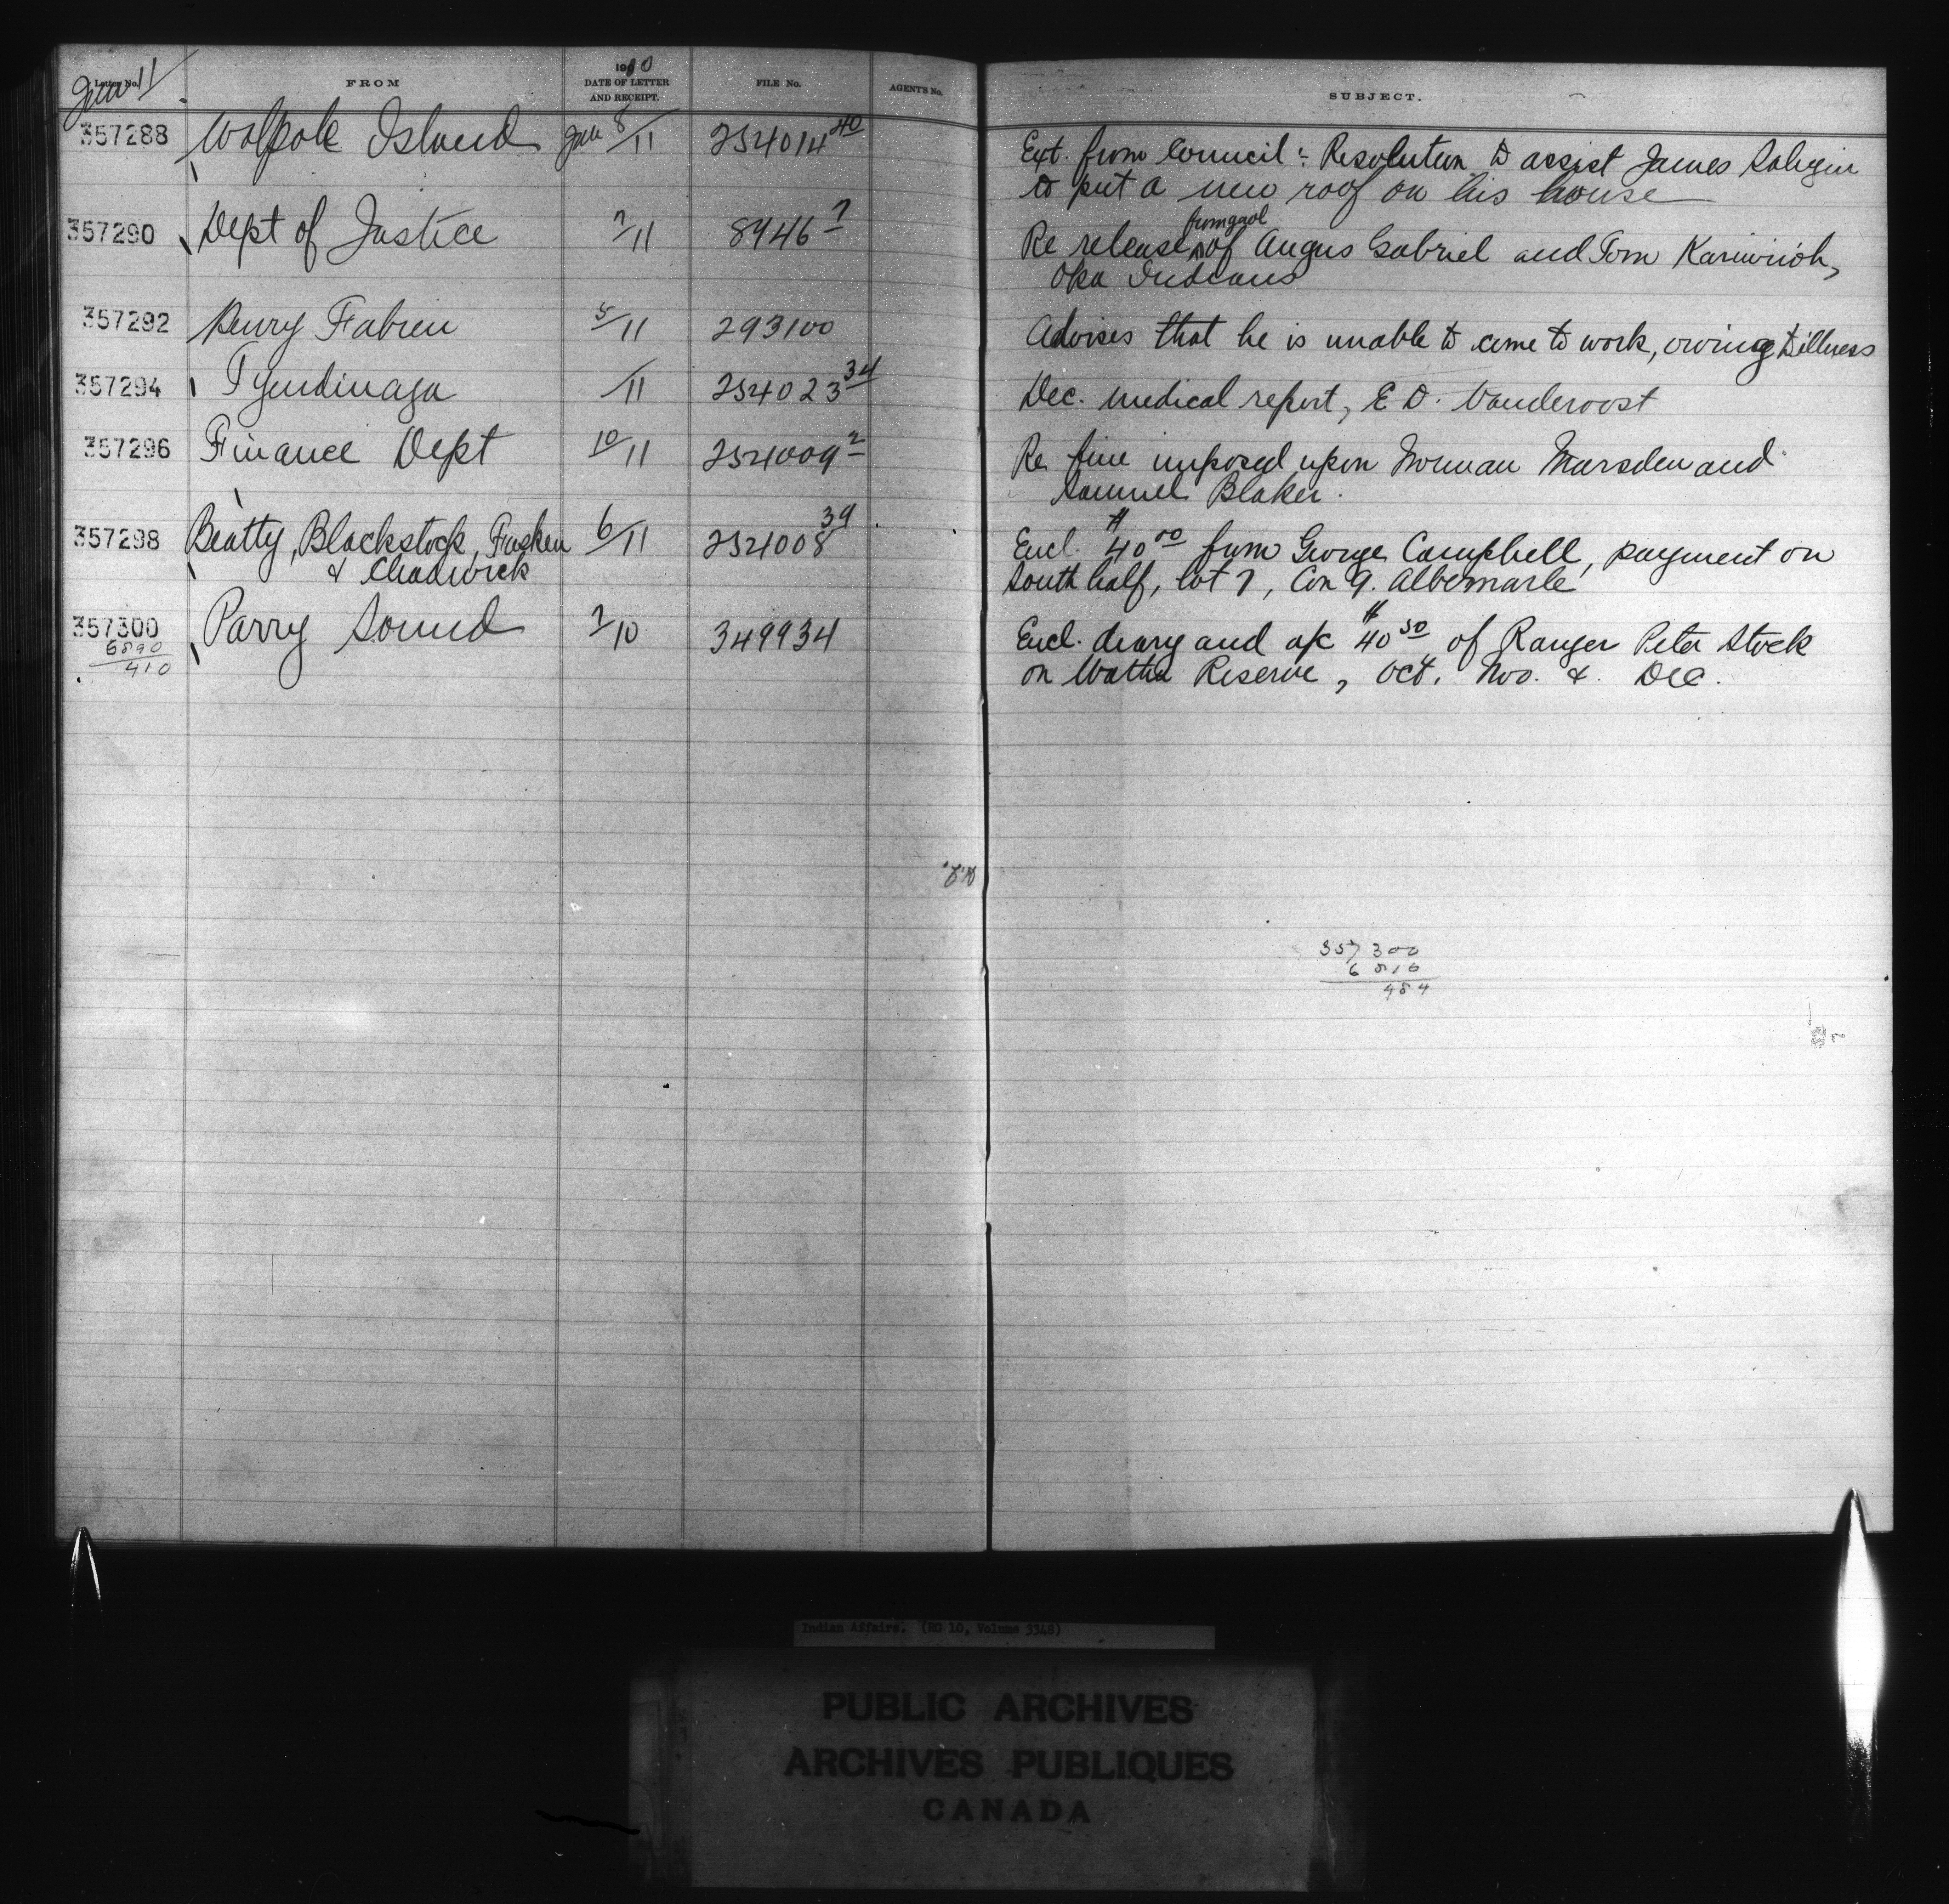 Jan 11
Letter No. FROM 1910 DATE OF LETTER AND RECEIPT. FILE No. AGENT'S No. SUBJECT.
357288 Walpole Island Jan 8/11 254014 40 Ext. from Council :- Resolution to assist James
to put a new roof on his house
357290 Dept of Justice 7/11 8946 7 Re release from gaol of Angus Gabriel and Tom
Oka Indians
357292 Henry Fabien 5/11 293100 Advises that he is unable to come to work, owing to illness
357294 Tyendinaga /11 254023 34 Dec. medical report, E D. Vandervoost
357296 Finance Dept 10/11 254009 2 Re fine imposed upon Norman Marsden and
Samuel Blaker.
357298 Beatty, Blackstock, Fasken 6/11 254008 39 Encl. $40 00 from George Campbell, payment on
& Chadwick south half, lot 7, Con 9. Albemarle
357300 Parry Sound 7/10 349934 Encl. diary and a/c $40 50 of Ranger Peter Stock
6890
410
on Watha Reserve, Oct. Nov. & Dec.
357300
6816
484
Indian Affairs. (RG 10, Volume 3348)
PUBLIC ARCHIVES
ARCHIVES PUBLIQUES
CANADA